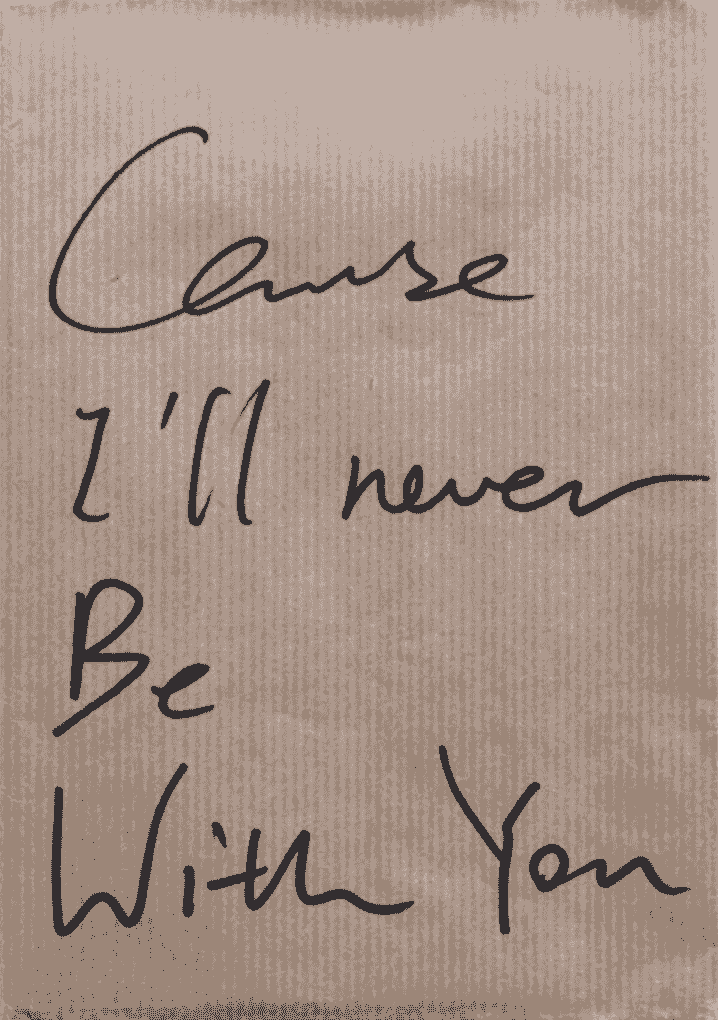 Cause
I'll never
Be
With You